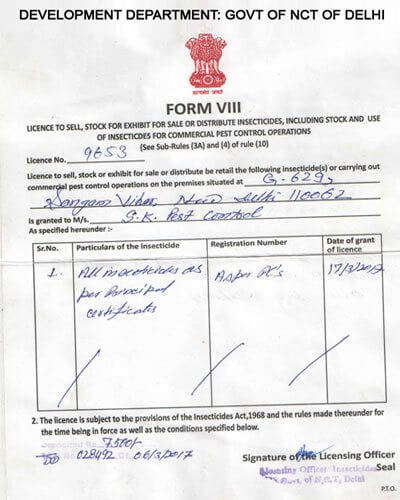 DEVELOPMENT DEPARTMENT: GOVT OF NCT OF DELHI
सत्यमेव जयते
FORM VIII
LICENCE TO SELL, STOCK FOR EXHIBIT FOR SALE OR DISTRIBUTE INSECTICIDES, INCLUDING STOCK AND USE
OF INSECTICDES FOR COMMERCIAL PEST CONTROL OPERATIONS
(See Sub-Rules (3A) and (4) of rule (10)
Licence No. 9653
Licence to sell, stock or exhibit for sale or distribute be retail the following insecticide(s) or carrying out
commercial pest control operations on the premises situated at G-629,
Sangam Vihar, New Delhi 110062
Is granted to M/s. S.K. Pest Control
As specified hereunder :-
Sr.No. Particulars of the insecticide Registration Number Date of grant
of licence
1. All insecticides as As per PC's 17/3/2017
per Principal
certificates
2. The licence is subject to the provisions of the Insecticides Act,1968 and the rules made thereunder for
the time being in force as well as the conditions specified below.
Deposited Rs. 7500/-
028492 06/3/2017
Signature of the Licensing Officer
Licensing Officer Insecticide Seal
Govt. of N.C.T, Delhi
P.T.O.